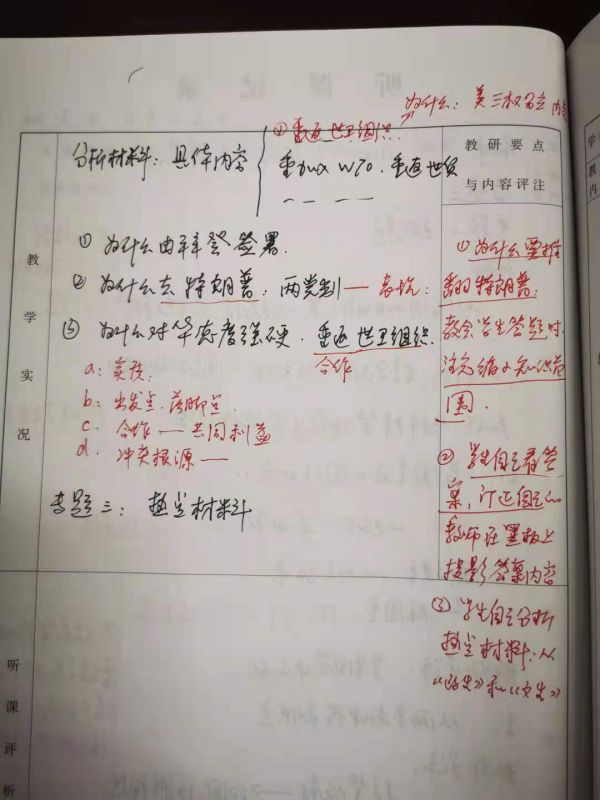 为什么：美三权分立 内容
①重返世卫组织
分析材料：具体内容
重加入WTO、重返世贸
教研要点
与内容评注
教学实况
①为什么由拜登签署.
②为什么去特朗普：两党制——表现：
③为什么对华态度强硬. 重返世卫组织
合作
a：实质：
b：出发点.落脚点
c. 合作——共同利益
d. 冲突根源——
专题三：热点材料
①为什么要推
翻特朗普：
教会学生答题时
注意缩小知识范
围.
②学生自己看答
案，订正自己的
教师在黑板上
投影答案内容
③学生自己分析
热点材料.从
《政生》和《文生》
听课评析
学
教
内